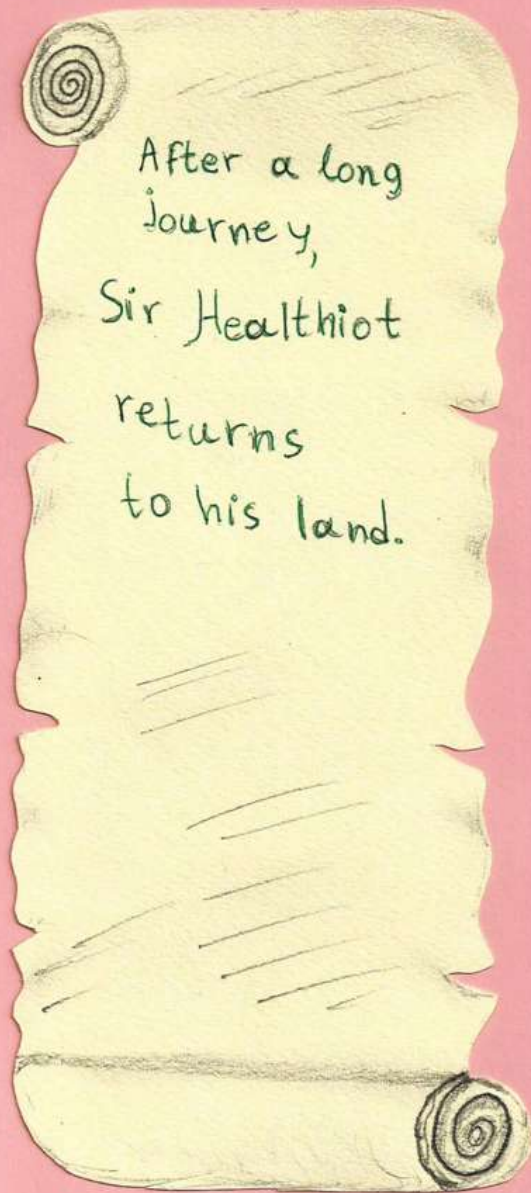 After a long
journey,
Sir Healthiot
returns
to his land.